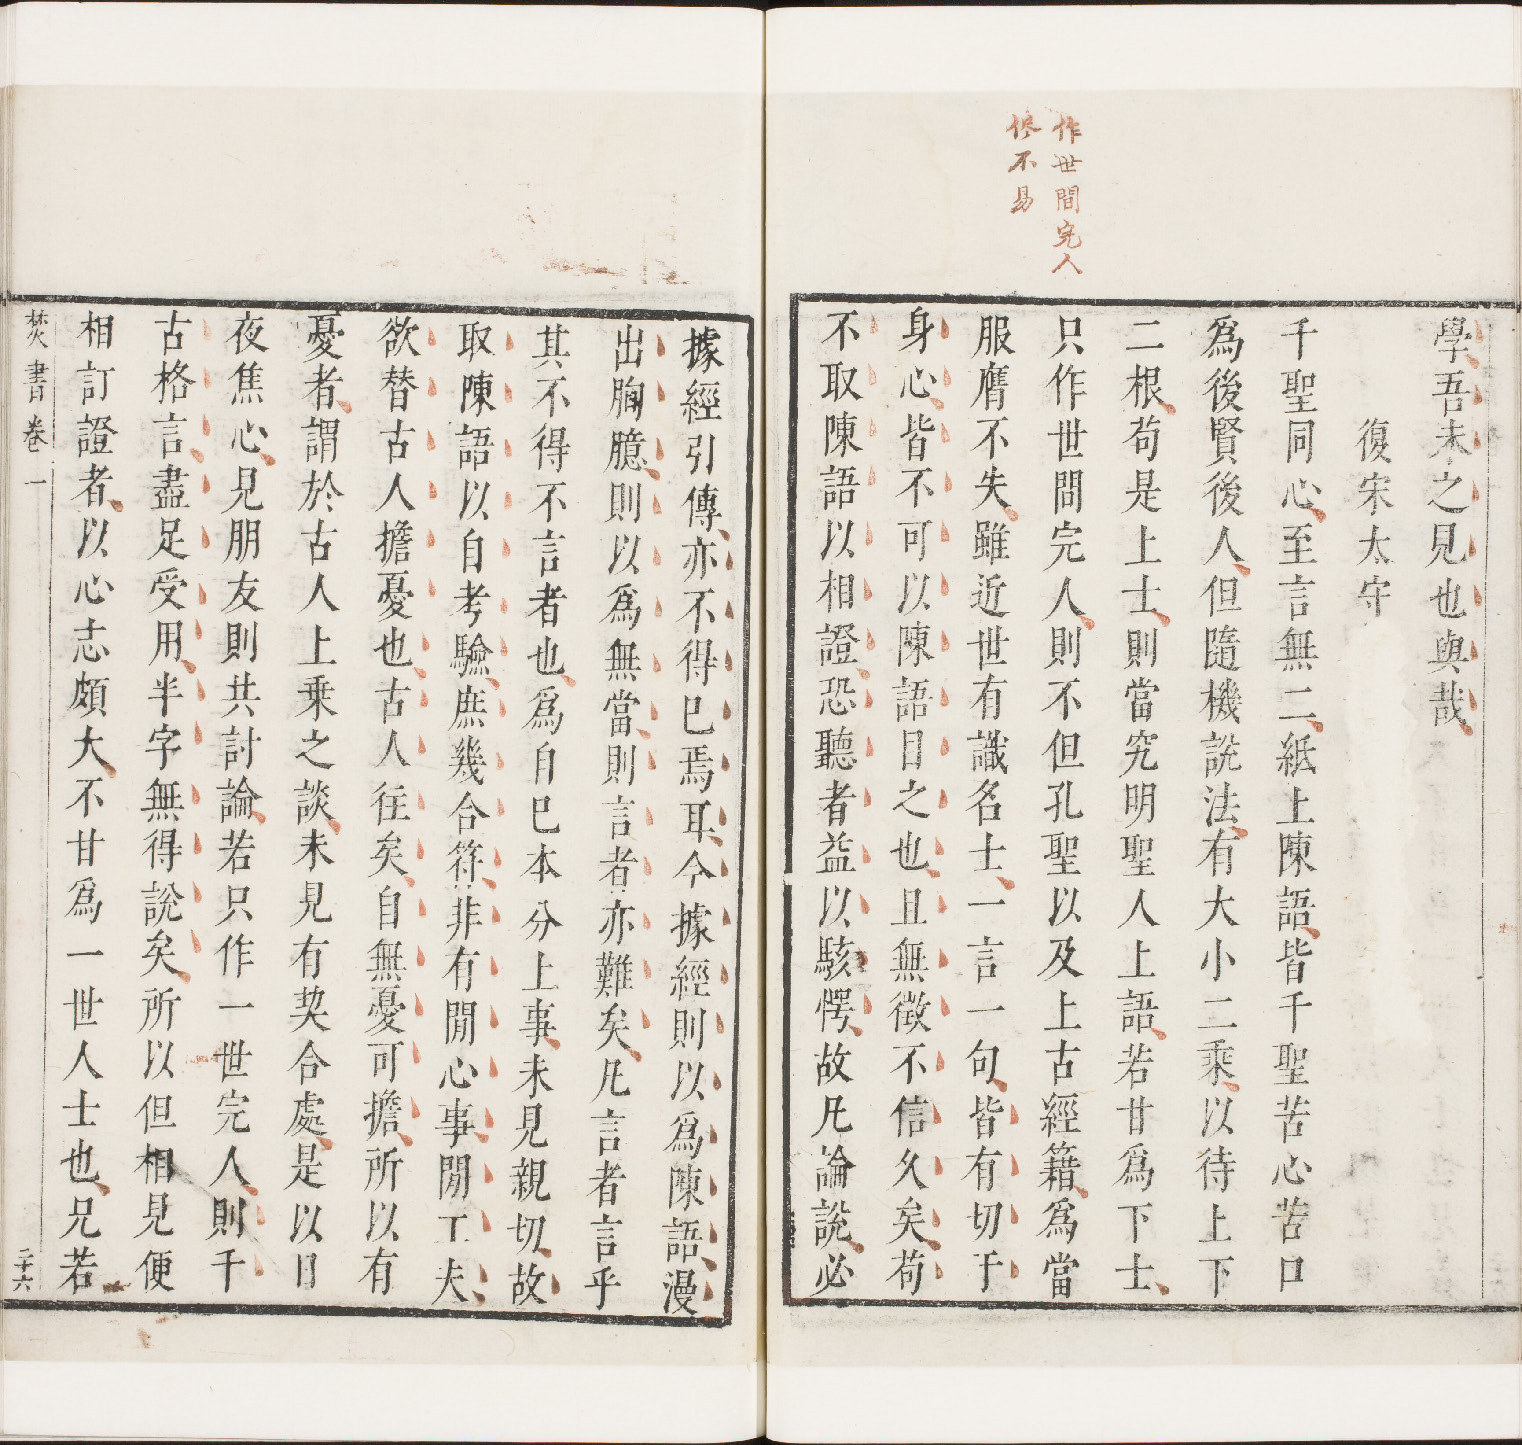 作世間完人
修不易
學吾未之見也與哉
復宋太守
千聖同心至言無二紙上陳語皆千聖苦心苦口
爲後賢後人但隨機說法有大小二乘以待上下
二根苟是上士則當究明聖人上語若甘爲下士
只作世間完人則不但孔聖以及上古經籍爲當
服膺不失雖近世有識名士一言一句皆有切于
身心皆不可以陳語目之也且無徵不信久矣苟
不取陳語以相證恐聽者益以駭愕故凡論說必
據經引傳亦不得已焉耳今據經則以爲陳語漫
出胸臆則以爲無當則言者亦難矣凡言者言乎
其不得不言者也爲自已本分上事未見親切故
取陳語以自考驗庶幾合符非有閒心事閒工夫
欲替古人擔憂也古人往矣自無憂可擔所以有
憂者謂於古人上乘之談未見有契合處是以日
夜焦心見朋友則共討論若只作一世完人則千
古格言盡足受用半字無得說矣所以但相見便
相訂證者以心志頗大不甘爲一世人士也兄若
焚書卷一
二十六